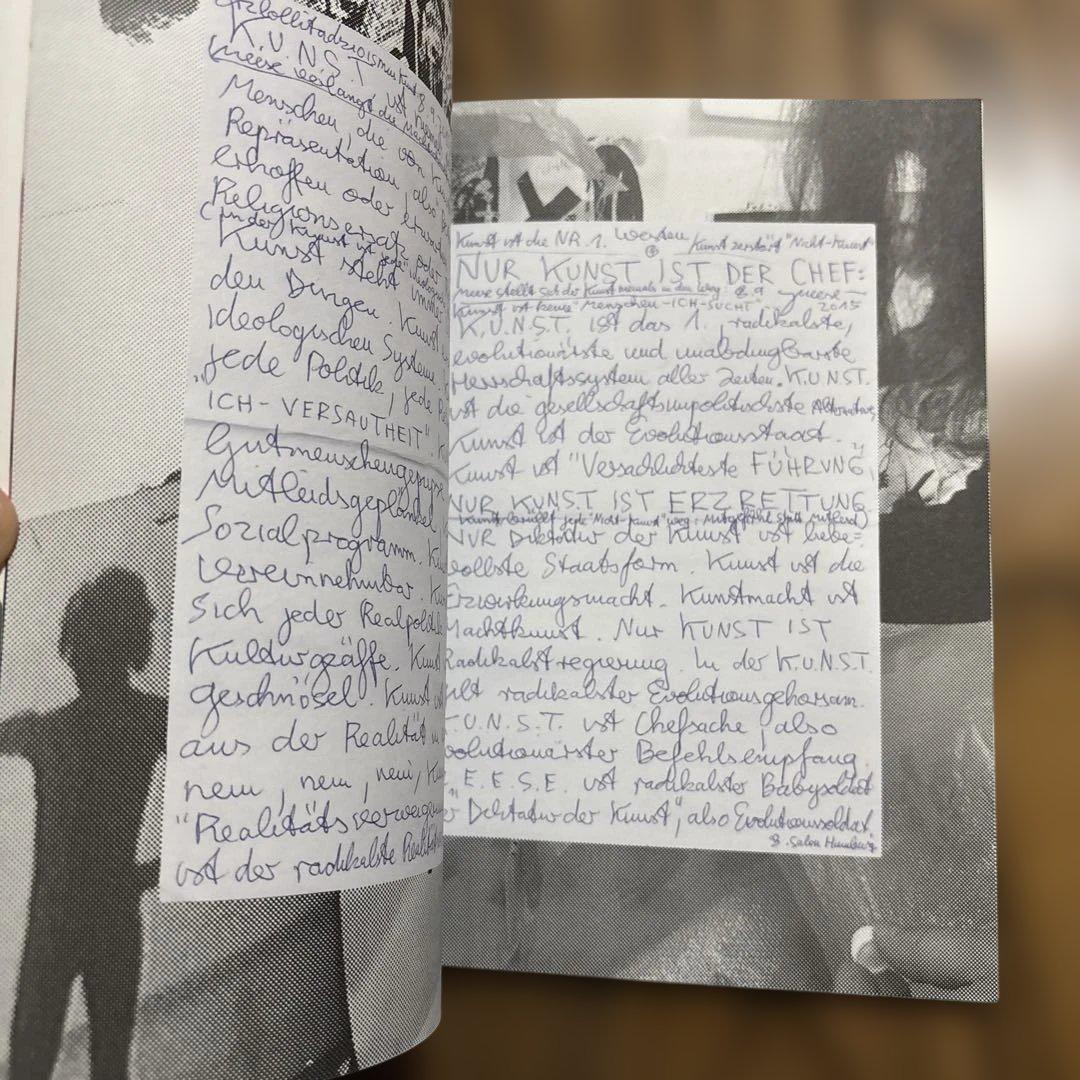 K.U.N.S.T. ist
Meese verlangt die
Menschen, die von
Repräsentation, also
erhoffen oder
Religionsersatz oder
(in der Kunst ist jede
Kunst steht immer
den Dingen. Kunst
ideologischen Systeme
"jede Politik, jede
ICH-VERSAUTHEIT".
Gutmenschengegrupse
Mitleidsgeplänkel
Sozialprogramm.
vereinnehmbar.
sich jeder Realpolitik
Kulturgeäffe.
geschnösel. Kunst
aus der Realität
nein, nein, nein,
"Realitätsverweigerung
ist der radikalste
Kunst ist die NR. 1. Kunst zerstört "Nicht-Kunst"
NUR KUNST IST DER CHEF:
Meese stellt sich der Kunst niemals in den Weg.
Kunst ist keine "Menschen-ICH-SUCHT" 2015
K.U.N.S.T. ist das 1., radikalste,
evolutionärste und unabdingbarste
Herrschaftssystem aller Zeiten. K.U.N.S.T.
ist die gesellschaftsunpolitischste Alternative,
Kunst ist der Evolutionsstaat.
Kunst ist "Versachlichteste FÜHRUNG",
NUR KUNST IST ERZRETTUNG
jede "Nicht-Kunst" weg: Mitgefühl statt
NUR Diktatur der Kunst ist liebe=
vollste Staatsform. Kunst ist die
Erzwirkungsmacht. Kunstmacht ist
Machtkunst. Nur KUNST IST
Radikalstregierung. In der K.U.N.S.T.
radikalster Evolutionsgehorsam.
K.U.N.S.T. ist Chefsache, also
evolutionärster Befehlsempfang.
E.E.S.E. ist radikalster Babysoldat
der "Diktatur der Kunst", also Evolutionssoldat
8. Salon Hamburg